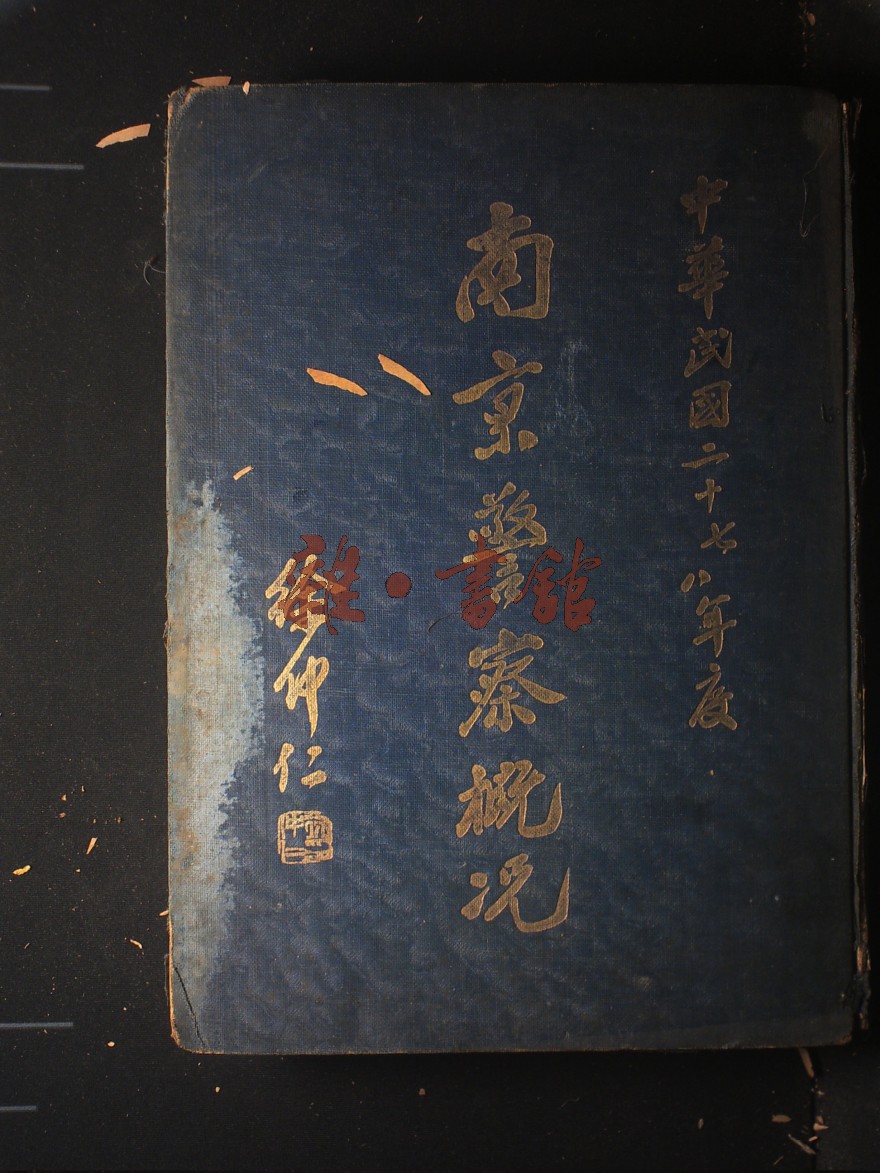 中華民國二十七八年度
南京警察概況
徐仲仁
雜·書館